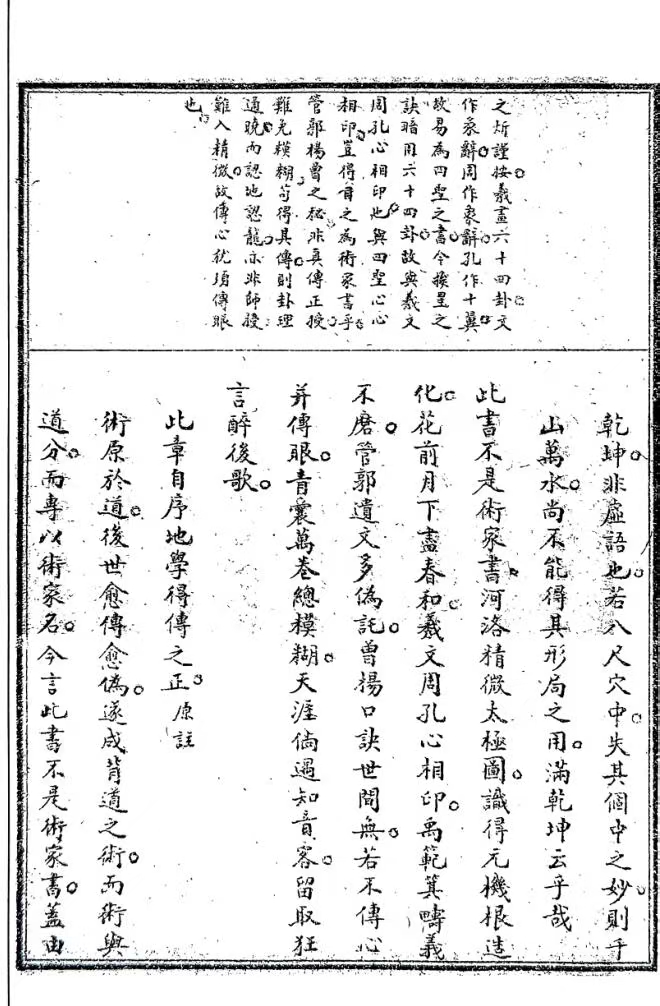 之斨謹按羲畫六十四卦文
作彖辭周作象辭孔作十翼
故易為四聖之書今挨星之
訣暗用六十四卦故與羲文
周孔心相印也與四聖心心
相印豈得目之為術家書乎
管郭楊曾之秘非真傳正授
難免模糊苟得其傳則卦理
通曉而認地認龍亦非師授
難入精微故傳心就須傳眼
也
乾坤非虛語也若八尺穴中失其個中之妙則千
山萬水尚不能得其形局之用滿乾坤云乎哉
此書不是術家書河洛精微太極圖識得元機根造
化花前月下盡春和羲文周孔心相印禹範箕疇義
不磨管郭遺文多偽託曾揚口訣世間無若不傳心
并傳眼青囊萬卷總模糊天涯倘遇知音客留取狂
言醉後歌
此章自序地學得傳之正原註
術原於道後世愈傳愈偽遂成背道之術而術與
道分而專以術家名今言此書不是術家書蓋由